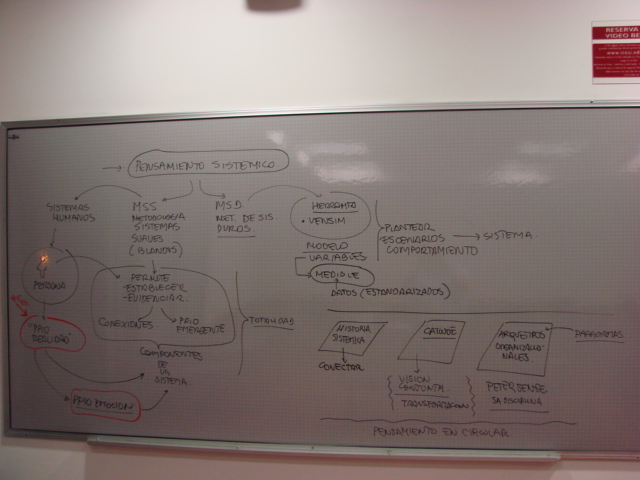 RESERVA
VIDEO BE
PENSAMIENTO SISTEMICO
SISTEMAS
HUMANOS
MSS
METODOLOGIA
SISTEMAS
SUAVES
(BLANDOS)
M.S.D.
MET. DE SIS.
DUROS.
• VENSIM
MODELO
VARIABLES
MEDIBLE
DATOS (ESTANDARIZADOS)
PLANTEAR
ESCENARIOS
COMPORTAMIENTO
SISTEMA
PERSONA
PERMITE
-ESTABLECER
-EVIDENCIAR.
CONEXIONES
PPIO
EMERGENTE
TOTALIDAD
COMPONENTES
DE
UN
SISTEMA
PPIO EMOCION
HISTORIA
SISTEMICA
CONECTAR
VISION
CONJUNTA
ARQUETIPOS
ORGANIZACIO
NALES
PARADIGMAS
PETER SENGE
5A DISCIPLINA
PENSAMIENTO EN CIRCULAR